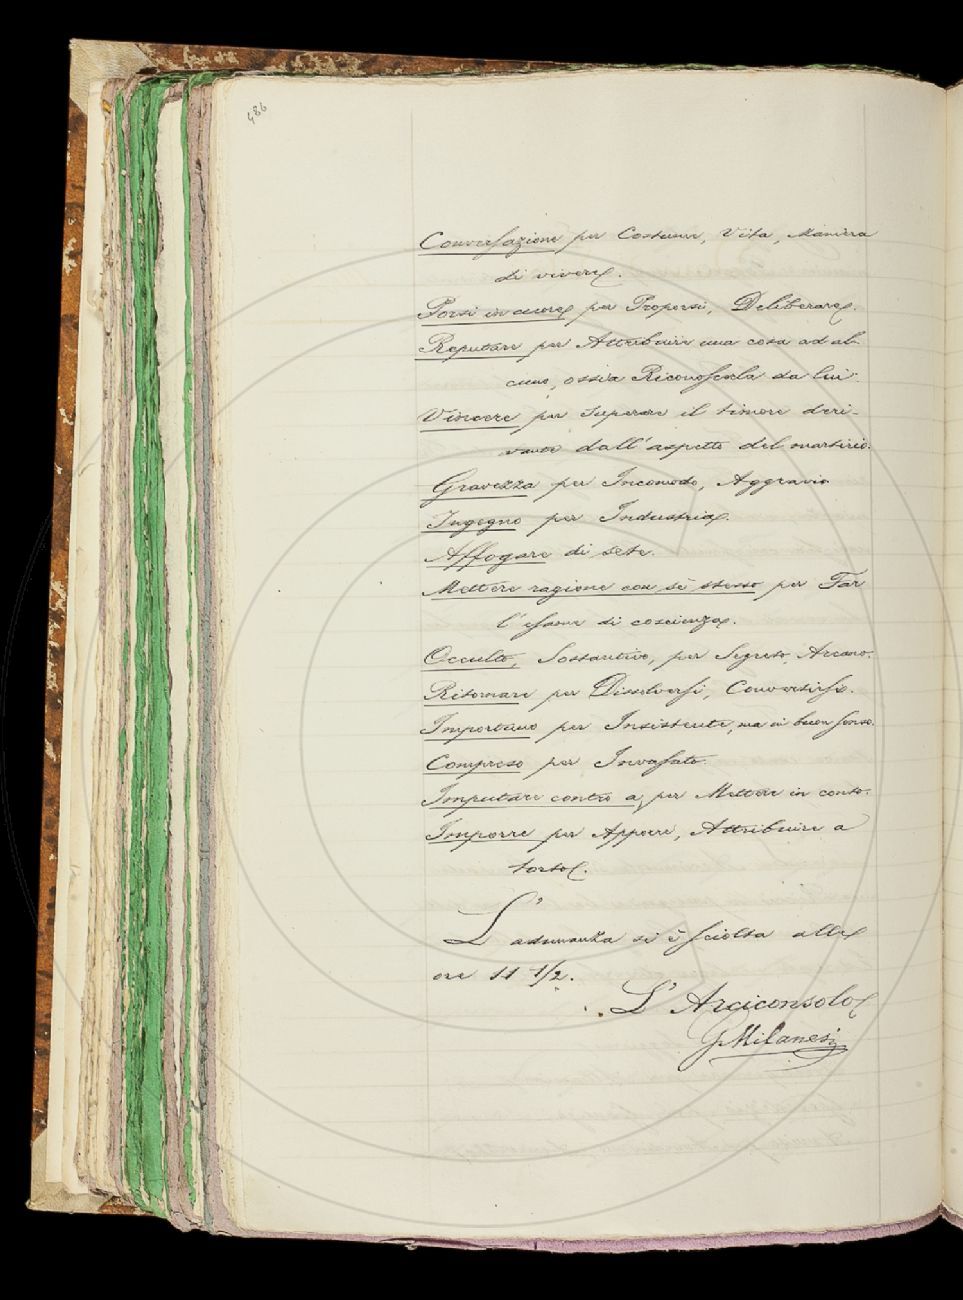 486
Conversazione per Costume, Vita, Maniera
di vivere.
Porsi in cuore per Proporsi, Deliberare.
Reputare per Attribuire una cosa ad al-
cuno, ossia Riconoscerla da lui.
Vincere per Superare il timore deri-
vante dall'aspetto del martirio.
Gravezza per Incomodo, Aggravio
Ingegno per Industria.
Affogare di sete.
Mettere ragione con sè stesso per Far
l'esame di coscienza.
Occulto, Sostantivo, per Segreto, Arcano.
Ritornare per Dissolversi, Convertirsi.
Importuno per Insistente, ma in buon senso.
Compreso per Invasato.
Imputare contro a, per Mettere in conto.
Imporre per Apporre, Attribuire a
torto.
L'adunanza si è sciolta alle
ore 11 1/2.
L'Arciconsolo
G Milanesi